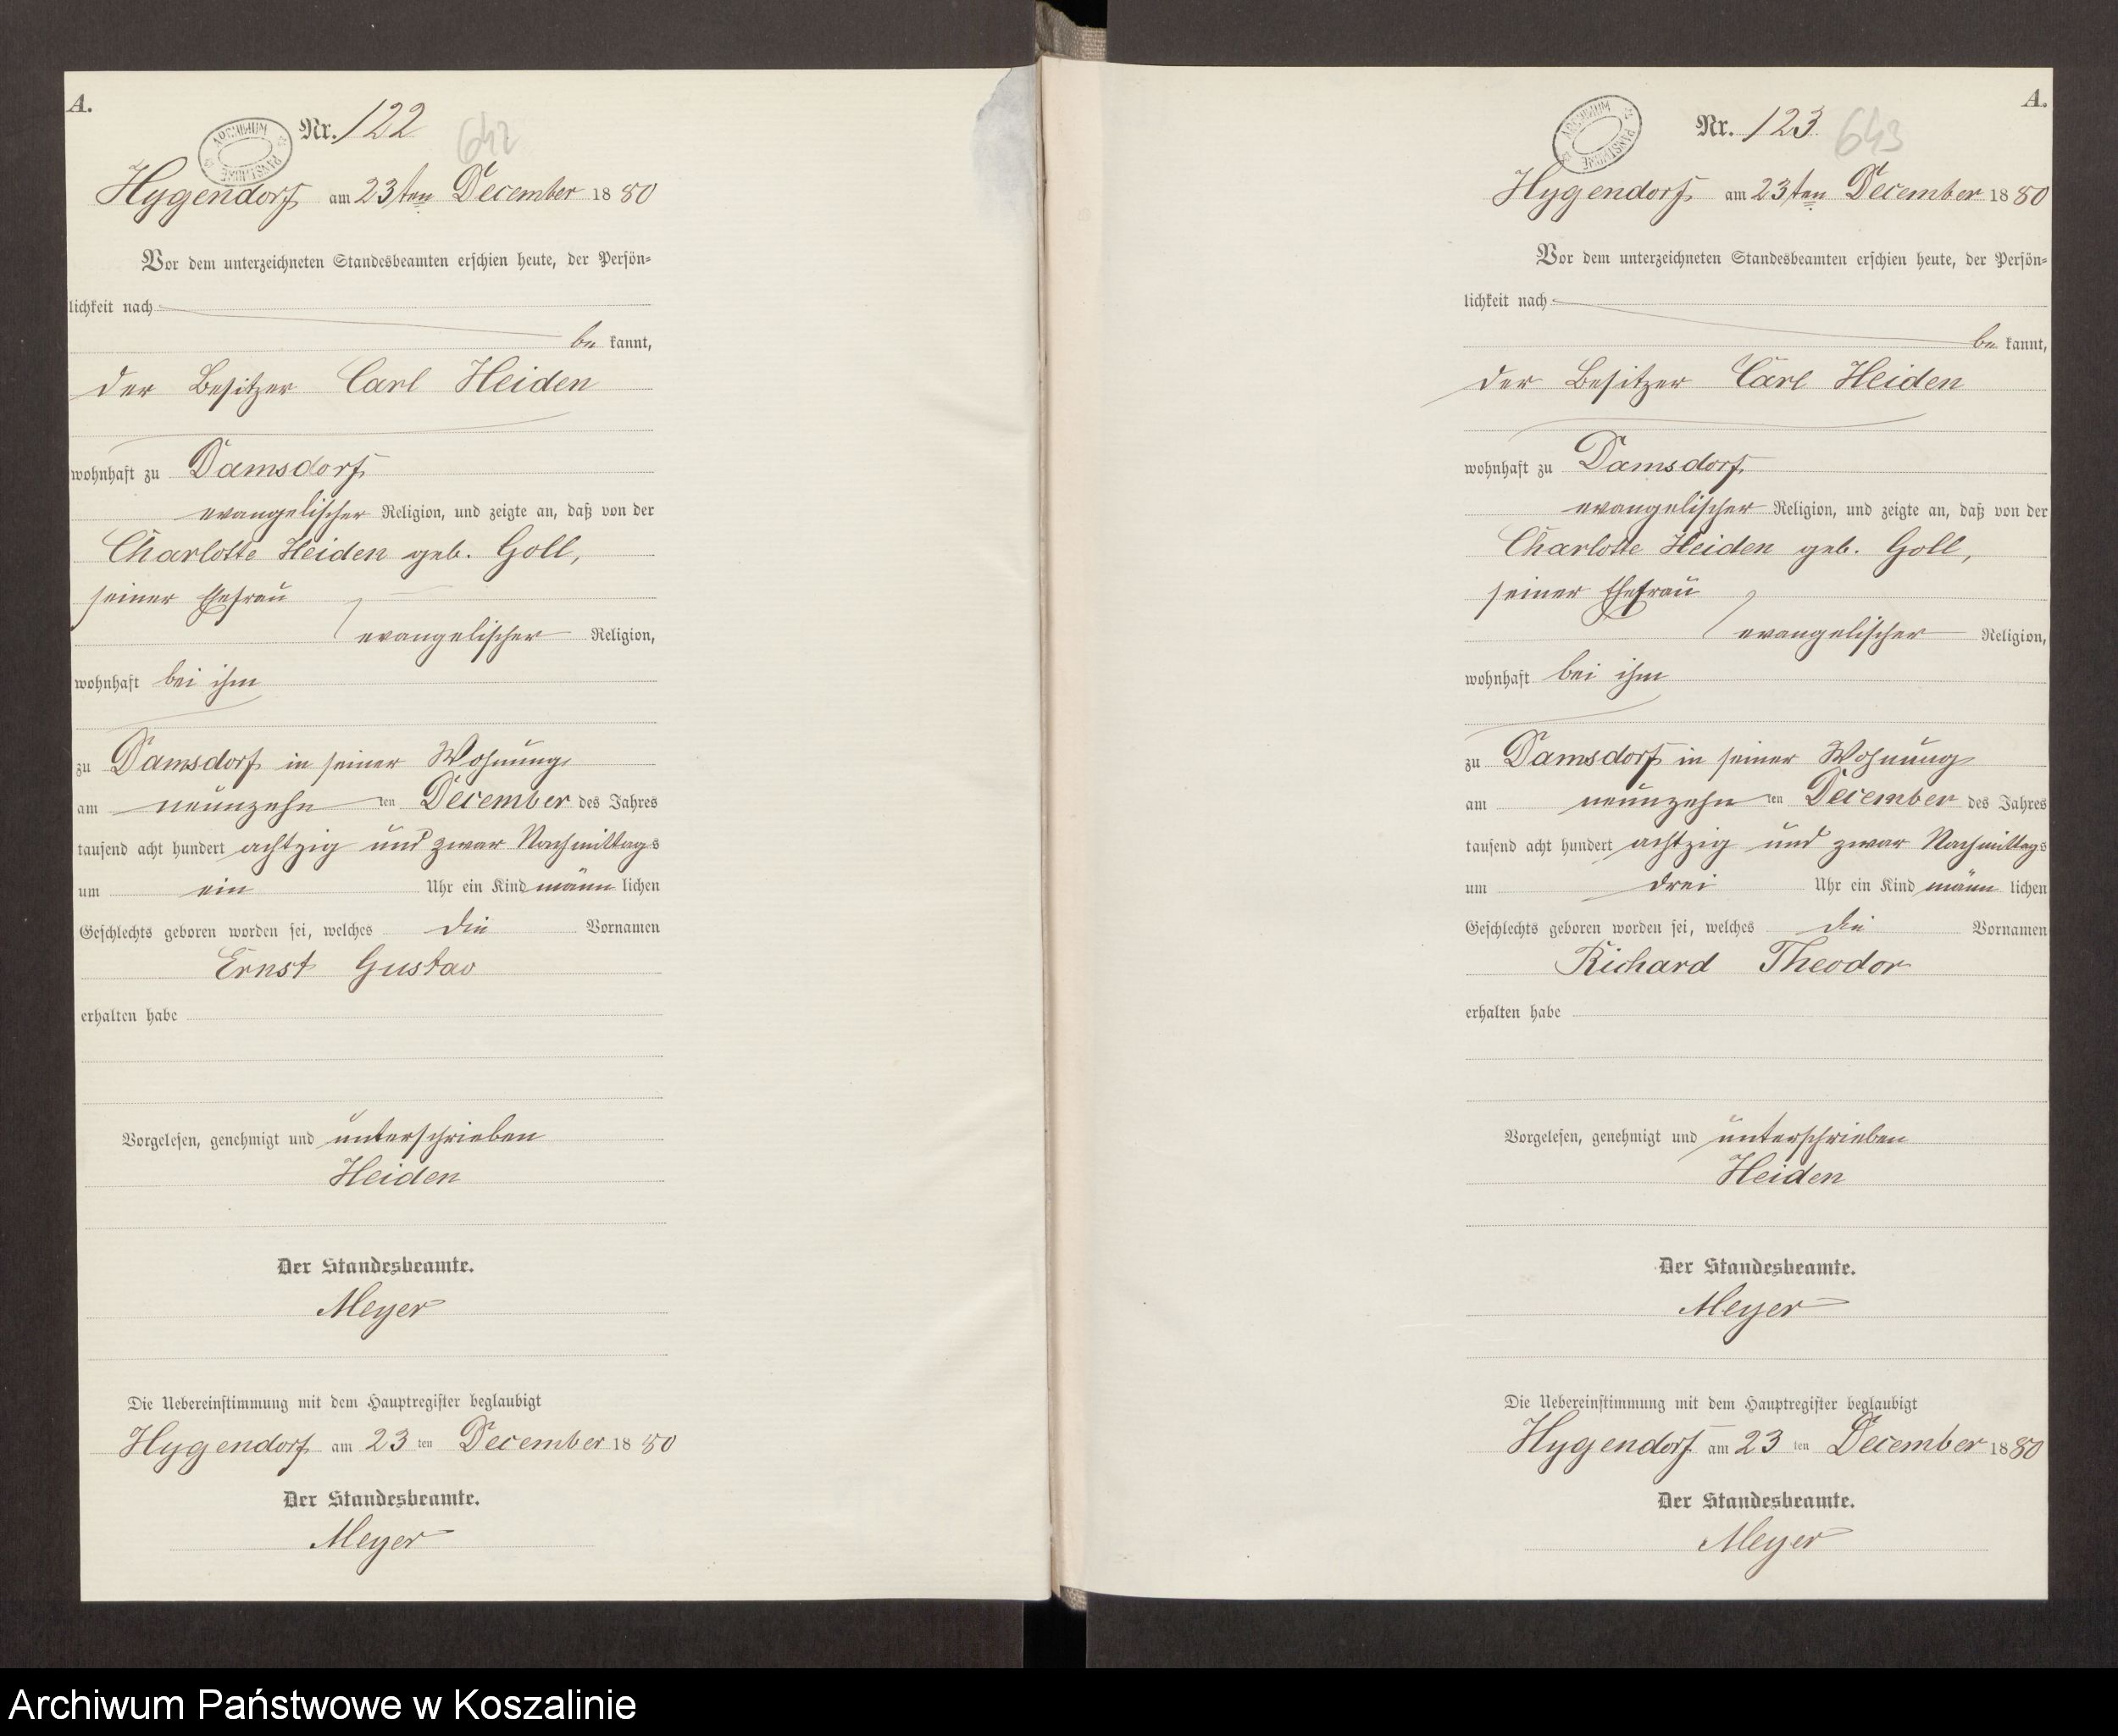 A.
ARCHIWUM PAŃSTWOWE
Nr. 122
642
Hygendorf am 23ten December 1880
Vor dem unterzeichneten Standesbeamten erschien heute, der Persön-
lichkeit nach
be kannt,
der Besitzer Carl Heiden
wohnhaft zu Damsdorf
evangelischer Religion, und zeigte an, daß von der
Charlotte Heiden geb. Goll,
seiner Ehefrau
evangelischer Religion,
wohnhaft bei ihm
zu Damsdorf in seiner Wohnung
am neunzehn ten December des Jahres
tausend acht hundert achtzig und zwar Nachmittags
um ein Uhr ein Kind männ lichen
Geschlechts geboren worden sei, welches die Vornamen
Ernst Gustav
erhalten habe
Vorgelesen, genehmigt und unterschrieben
Heiden
Der Standesbeamte.
Meyer
Die Uebereinstimmung mit dem Hauptregister beglaubigt
Hygendorf am 23 ten December 1880
Der Standesbeamte.
Meyer
A.
ARCHIWUM PAŃSTWOWE
Nr. 123
643
Hygendorf am 23ten December 1880
Vor dem unterzeichneten Standesbeamten erschien heute, der Persön-
lichkeit nach
be kannt,
der Besitzer Carl Heiden
wohnhaft zu Damsdorf
evangelischer Religion, und zeigte an, daß von der
Charlotte Heiden geb. Goll,
seiner Ehefrau
evangelischer Religion,
wohnhaft bei ihm
zu Damsdorf in seiner Wohnung
am neunzehn ten December des Jahres
tausend acht hundert achtzig und zwar Nachmittags
um drei Uhr ein Kind männ lichen
Geschlechts geboren worden sei, welches die Vornamen
Richard Theodor
erhalten habe
Vorgelesen, genehmigt und unterschrieben
Heiden
Der Standesbeamte.
Meyer
Die Uebereinstimmung mit dem Hauptregister beglaubigt
Hygendorf am 23 ten December 1880
Der Standesbeamte.
Meyer
Archiwum Państwowe w Koszalinie